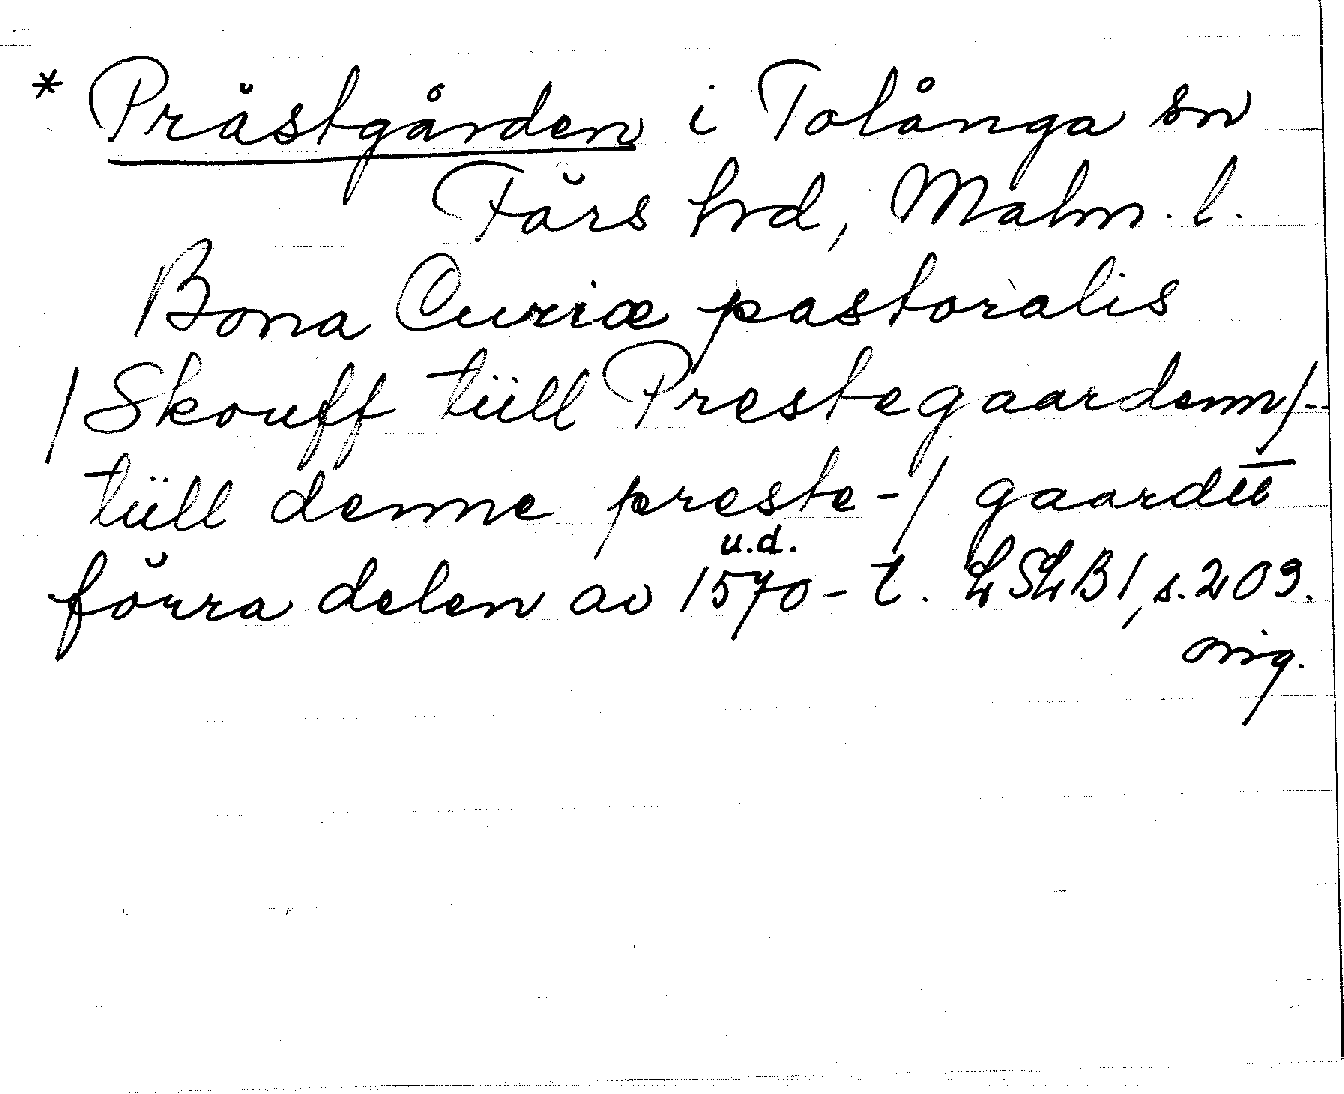 * Prästgården i Tolånga sn
Färs hd, Malm. l.
Bona Curiæ pastoralis
/Skouff tüll Prestegaardenn/-
tüll denne preste-/ gaardtt
u.d.
förra delen av 1570-t. LSLB I, s. 209.
orig.